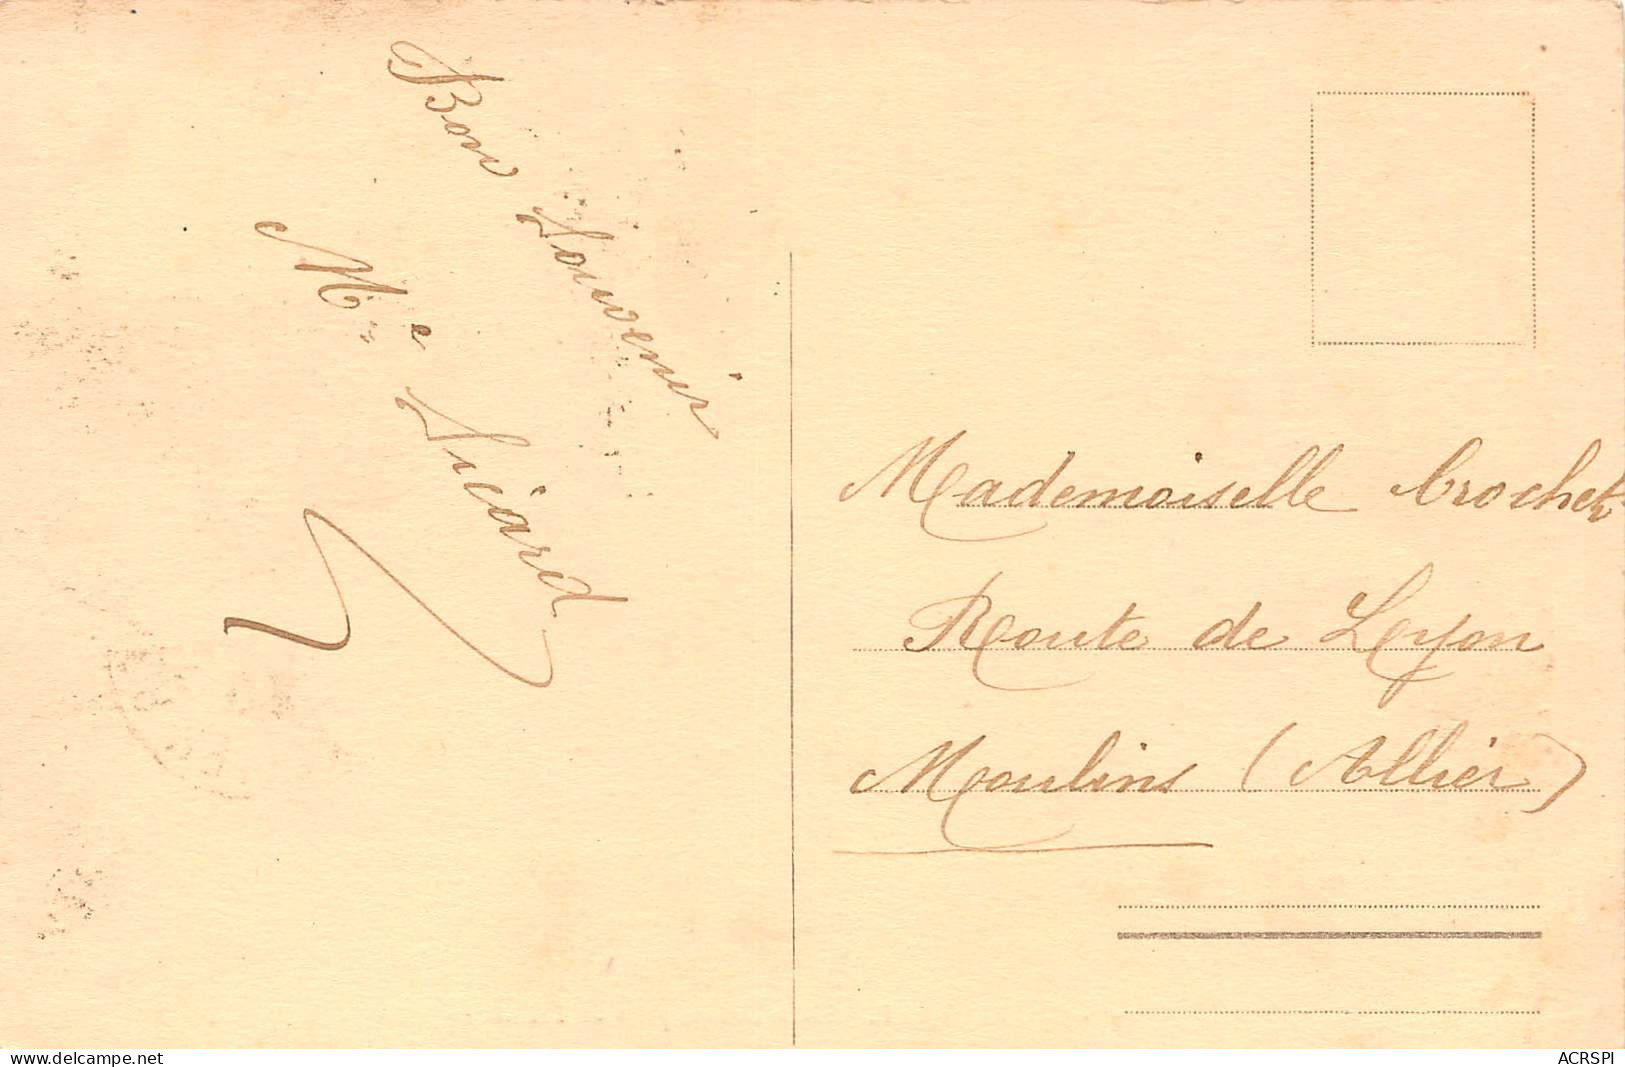 Bon Souvenir
Me Sicard
Mademoiselle Crochet
Route de Lyon
Moulins (Allier)
www.delcampe.net
ACRSPI